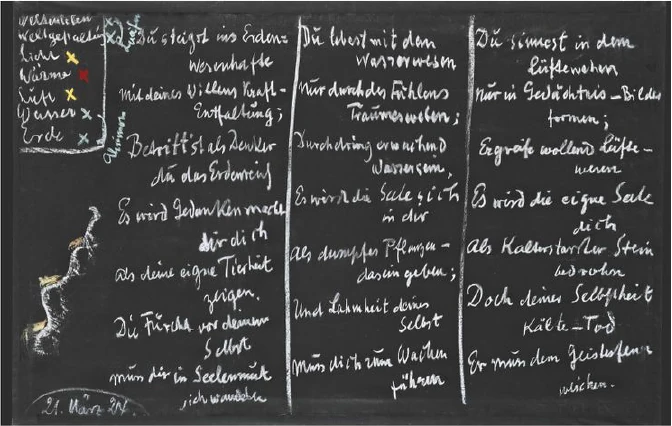 Licht
Wärme
Luft
Wasser
Erde
Du steigst ins Erden-
wesenhafte
Mit deines Willens Kraft-
Entfaltung;
Betritt'st als Denker
du das Erdenreich
Es wird Gedankenmacht
dir dich
als deine eigne Tierheit
zeigen.
Die Furcht vor deinem
Selbst
muss dir in Seelenmut
sich wandeln
Du lebest mit dem
Wasserwesen
Nur durch des Fühlens
Traumesweben;
Durchdring erwachend
Wassersein,
Es wird die Seele sich
in dir
Als dumpfes Pflanzen-
dasein geben;
Und Lahmheit deines
Selbst
Muss dich zum Wachen
führen
Du sinnest in dem
Lüftewehen
Nur in Gedächtnis-Bildes
formen;
Ergreife wollend Lüfte-
wesen
Es wird die eigne Seele
dich
Als Kalterstarrter Stein
bedrohn
Doch deiner Selbstheit
Kälte-Tod
Er muss dem Geistesfeuer
weichen.
21. März 24.